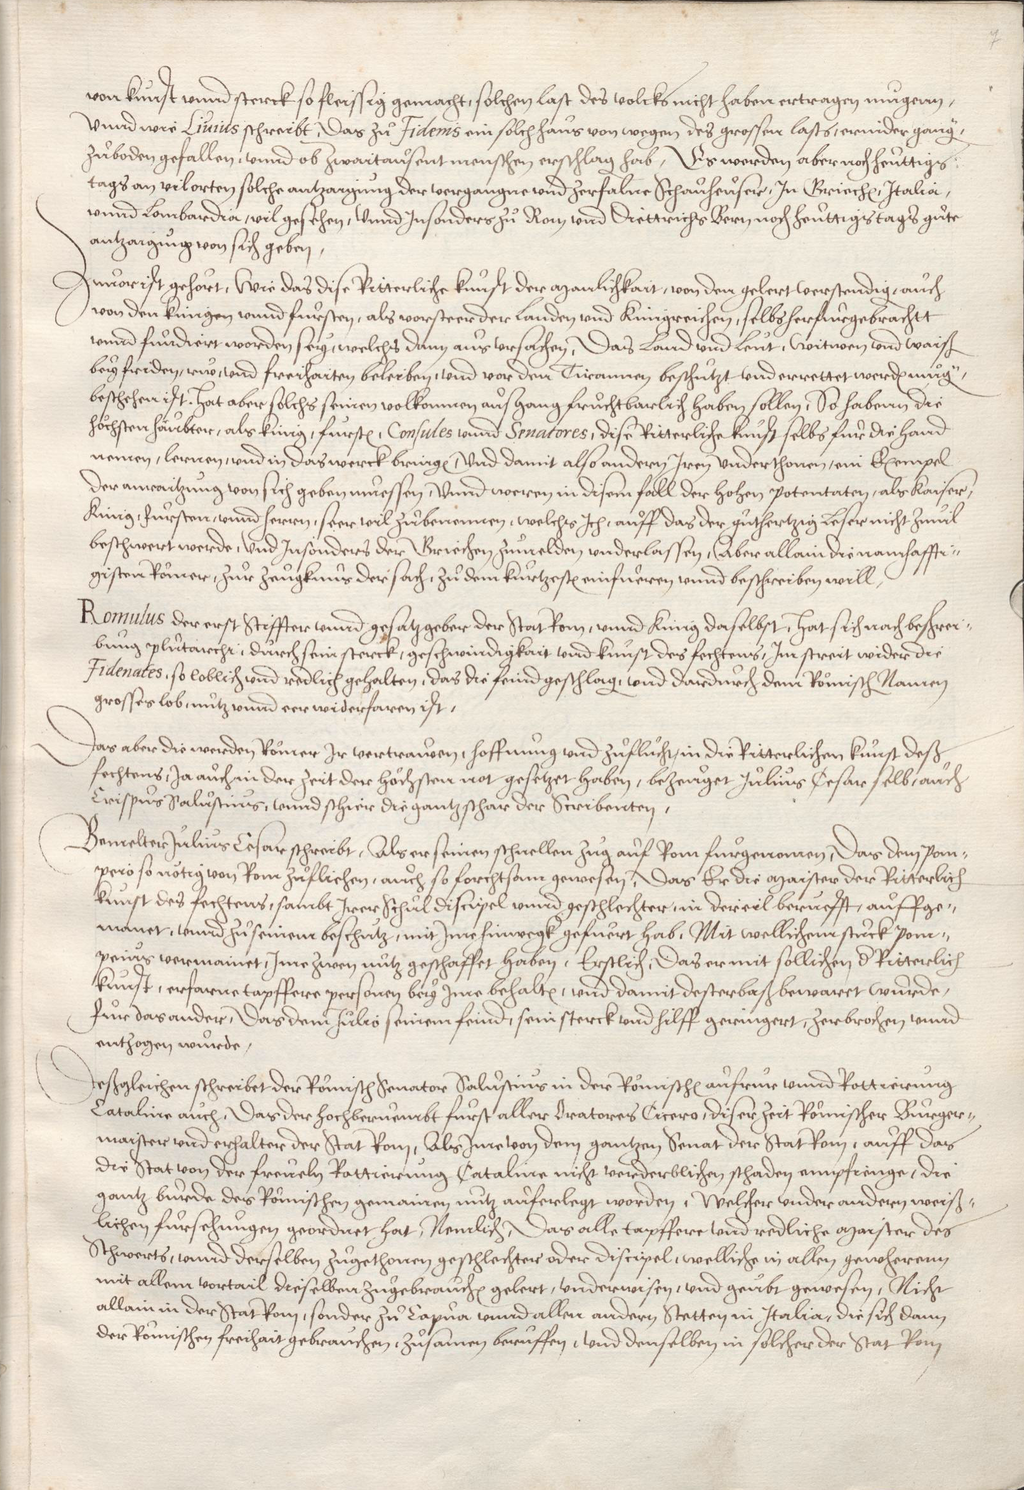 7
von kunst unnd sterck so fleissig gemacht, solchen last des volcks nicht haben ertragen mugenn,
Unnd wie Liuius schreibt, Das zu Fidenis ein solch haus von wegen des grossen lasts, ernider gang,
zuboden gefallen, unnd ob zwaitausent menschen erschlag hab, Es werden aber noch heuttigs
tags an vil orten solche antzaigung der vergangne und zerfalne Schauheuser, In Briech, Italia,
unnd Lombardia, vil gesehen, Unnd Insonders zu Rom und Diettrichs Bern noch heuttigs tags gute
antzaigung von sich geben,
Zuuor ist gehört, Wie das dise Ritterliche kunst der manlichkait, von den gelert verstendig, auch
von den kunigen unnd fursten, als vorsteer der Landen und Kunigreichen, selbs herfurgebracht
unnd fundiert worden sey, welchs dann aus ursachen, Das Land und Leut, witwen und waiß
bey friden, ruo, und freihaiten beleiben, und vor den Tirannen beschutzt und errettet werd mug,
beschehen ist. Hat aber solchs seinen volkomnen ausgang fruchtbarlich haben sollen, So habenn die
höchsten häubter, als king, furst, Consules unnd Senatores, dise Ritterliche kunst selbs fur die hand
nemen, lernen, und in das werck bring, Und damit also andern Iren underthonen, ein Exempel
der anraitzung von sich geben muessen, Unnd weren in disem fall der hohen potentaten, als Kaiser,
King, fursten, unnd herren, seer vil zubenennen, welchs Ich, auff das der guthertzig Leser nicht zuuil
beschwert werde, und Insonders der Briechen zumelden underlassen, Aber allain die namhaffti-
gisten Römer, zur zeugknus der sach, zu dem kurtzest einfueren unnd beschreiben will,
Romulus der erst Stiffter unnd gesatzgeber der Stat Rom, unnd King daselbst, Hat sich nach beschrei-
bung plutarchi, durch sein sterck, geschwindigkait und kunst des fechtens, Im streit wider die
Fidenates, so loblich und redlich gehalten, das die feind geschlag, und dardurch dem Römisch Namen
grosses lob, nutz unnd eer widerfaren ist,
Das aber die werden Römer Ir vertrawen, hoffnung und zuflucht, in die Ritterlichen kunst deß
fechtens, Ja auch in der zeit der höchsten not gesetzet haben, bezeuget Julius Cesar selb, auch
Crispus Salustius, unnd schier die gantz schar der Scribenten,
Bemelter Julius Cesar schreibt, Als er seinen schnellen zug auf Rom furgenomen, Das dem Pom-
peio so nötig von Rom zufliehen, auch so forchtsam gewesen, Das Er die maister der Ritterlich
kunst des fechtens, sambt Irer Schul discipel unnd geschlechter, in der eil beruefft, auffge-
manet, unnd zu seinem beschutz, mit Ime hinwegk gefuert hab. Mit wellichem stuck Pom-
peius vermainet, Ime zwen nutz geschaffet haben, Erstlich, Das er mit sollichen d Ritterlich
kunst, erfarne tapffere personen bey Ime behalt, und damit desterbaß bewaret wurde,
Fur das ander, Das dem Julio seinem feind, sein sterck und hilff geringert, zerbrochen unnd
entzogen wurde,
Deßgleichen schreibet der Römisch Senator Salustius in der Römisch aufrur unnd Rottierung
Cataline auch, Das der hochberuembt furst aller Oratores Cicero, diser zeit Römischer Burger-
maister und erhalter der Stat Rom, Als Ime von dem gantzen Senat der Stat Rom, auff das
die Stat von der freueln Rottierung Cataline nicht verderblichen schaden empfienge, die
gantz burde des Römischen gemainen nutz auferlegt worden, Welcher under andern weiß-
lichen fursehungen geordnet hat, Nemlich, Das alle tapffere und redliche maister des
Schwerts, unnd derselben zugethonen geschlechter oder discipel, welliche in allen gewherenn
mit allem vortail dieselben zugebrauch gelert, underwisen, und geuebt gewesen, Nicht
allain in der Stat Rom, sonder zu Capua unnd allen andern Stetten in Italia, die sich dann
der Römischen freihait gebrauchen, zusamen berueffen, und denselben in solcher der Stat Rom